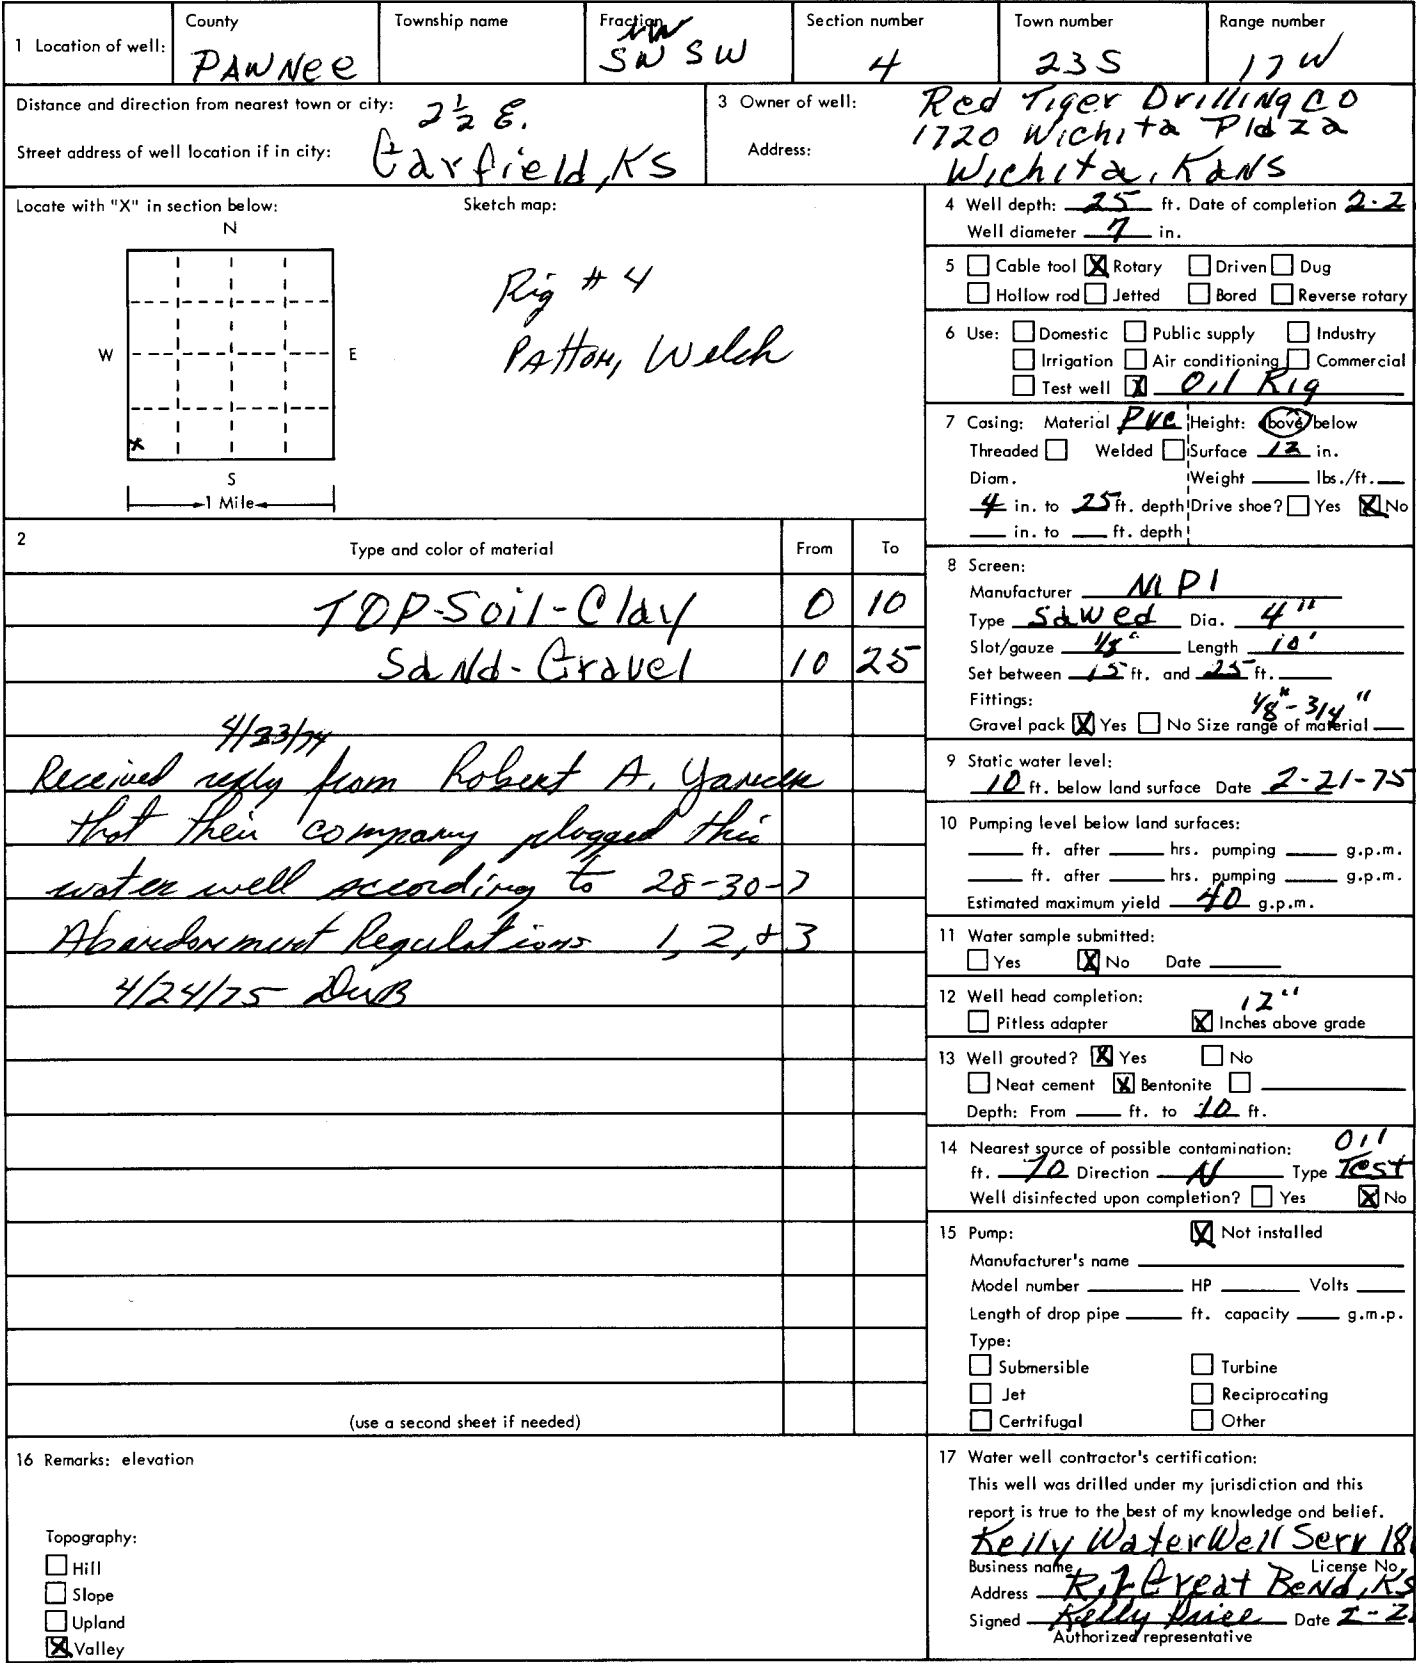 1 Location of well: County PAWNee Township name Fraction NW SW SW Section number 4 Town number 23S Range number 17W
Distance and direction from nearest town or city: 2½ E.
Street address of well location if in city: Garfield, KS
3 Owner of well: Red Tiger Drilling CO
Address: 1720 Wichita Plaza
Wichita, Kans
Locate with "X" in section below:
N
W E
S
1 Mile
X
Sketch map:
Rig # 4
Patton, Welch
2 Type and color of material From To
TOP-Soil-Clay 0 10
Sand-Gravel 10 25
Received reply from Robert A.
that their company plugged this
water well according to 28-30-7
Abandonment Regulations 1, 2, & 3
4/24/75
(use a second sheet if needed)
4 Well depth: 25 ft. Date of completion 2-2
Well diameter 7 in.
5 Cable tool X Rotary Driven Dug
Hollow rod Jetted Bored Reverse rotary
6 Use: Domestic Public supply Industry
Irrigation Air conditioning Commercial
Test well X Oil Rig
7 Casing: Material PVC Height: above/below
Threaded Welded Surface 12 in.
Diam. Weight lbs./ft.
4 in. to 25 ft. depth Drive shoe? Yes X No
in. to ft. depth
8 Screen:
Manufacturer
Type Sawed Dia. 4"
Slot/gauze 1/8" Length 10'
Set between 15 ft. and 25 ft.
Fittings: 1/8" - 3/4"
Gravel pack X Yes No Size range of material
9 Static water level:
10 ft. below land surface Date 2-21-75
10 Pumping level below land surfaces:
ft. after hrs. pumping g.p.m.
ft. after hrs. pumping g.p.m.
Estimated maximum yield 40 g.p.m.
11 Water sample submitted:
Yes X No Date
12 Well head completion: 12"
Pitless adapter X Inches above grade
13 Well grouted? X Yes No
Neat cement X Bentonite
Depth: From ft. to 10 ft.
14 Nearest source of possible contamination: Oil
ft. 70 Direction N Type Test
Well disinfected upon completion? Yes X No
15 Pump: X Not installed
Manufacturer's name
Model number HP Volts
Length of drop pipe ft. capacity g.m.p.
Type:
Submersible Turbine
Jet Reciprocating
Certrifugal Other
16 Remarks: elevation
Topography:
Hill
Slope
Upland
X Valley
17 Water well contractor's certification:
This well was drilled under my jurisdiction and this
report is true to the best of my knowledge ond belief.
Kelly Water Well Serv 18
Business name License No.
Address Great Bend, KS
Signed Kelly Price Date 2-2
Authorized representative